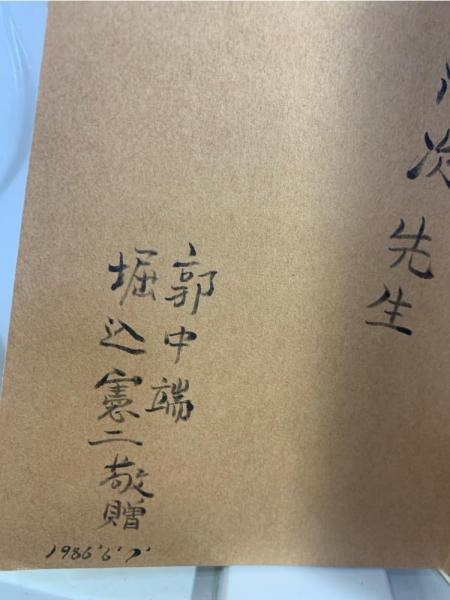 次 先生
郭中端
堀込憲二 敬贈
1986.6.7.